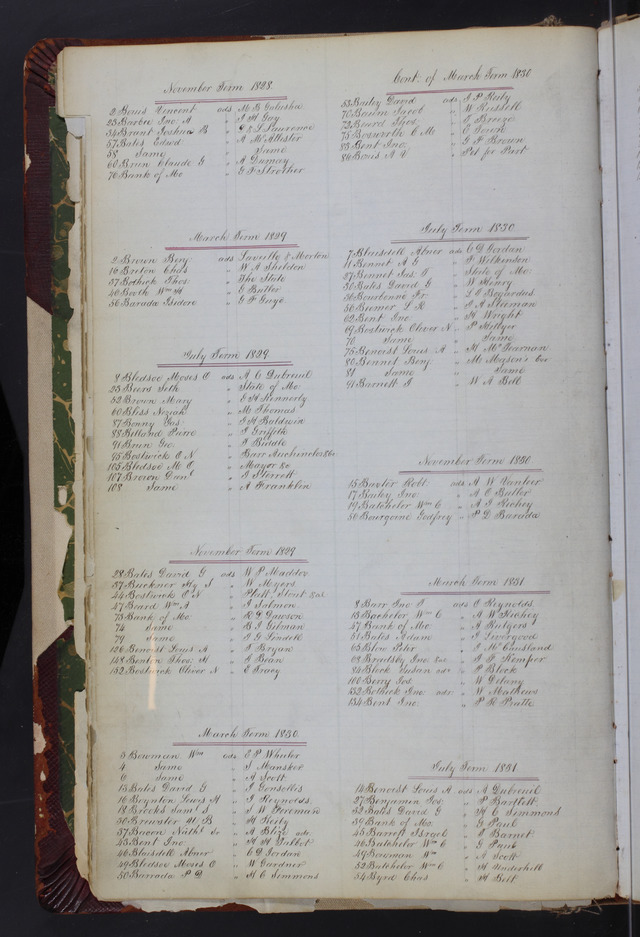 November Term 1828
2 Bouis Vincent ads M B Golusha
23 Barbie Jno. A " J H Gay
34 Brant Joshua B " C & L Lawrence
57 Bates Edwd " A McAllister
58 Same " Same
60 Brun Claude G " A Dumay
76 Bank of Mo " G F Strother
March Term 1829
2 Brown Benj. ads Saville & Morton
16 Breton Chas " W A Sheldon
37 Bothick Thos. " The State
40 Booth Wm H " G Butler
56 Barada Isidore " G P Guye
July Term 1829
8 Bledsoe Moses O ads A C Dubreuil
25 Beers Seth " State of Mo
52 Brown Mary " E H Kennerly
60 Bliss " M Thomas
87 Bonny Jas. " J H Baldwin
88 Billand Pierre " J Griffith
91 Brun Geo. " J Biddle
95 Bostwick O N " Barr Auchincloss &c
105 Bledsoe M O " Mayor &c
107 Brown Danl " J Sterrett
108 Same " A Franklin
November Term 1829
28 Bates David G ads W P Maddox
37 Buckner Hy. S " W Myers
44 Bostwick O N " Platt Stout &c
47 Beard Wm A " J Salmon
73 Bank of Mo. " R G Dawson
74 Same " B I Gilman
79 Same " J G Lindell
126 Benoist Louis A " J Bryan
148 Benton Thos. H " R Bean
152 Bostwick Oliver N " E Tracy
March Term 1830
3 Bowmeon Wm ads E P Wheeler
4 Same " J Mansker
6 Same " A Scott
15 Bates David G " J Gonsolles
16 Boynton Lewis H " J Reynolds
18 Brooks Saml S " J W Perriman
30 Brewster W B " H Keity
37 Bacon Nathl &c " A Bliz adr.
43 Bent Jno. " H H Talbot
46 Blaisdell Abner " C D Jordan
49 Bledsoe Moses O " W Gardner
50 Barrada P D " H C Simmons
Cont. of March Term 1830
53 Bailey David ads J P Reity
70 Baum Jacob " W Russell
72 Beard Thos. " E Breeze
75 Bosworth C Mc " E Town
83 Bent Jno. " G F Brown
84 Bouis A V " Pet for Part
July Term 1830
7 Blaisdell Abner ads C D Jordan
11 Bennet A G " P Wilkinson
27 Bennet Jas. T " State of Mo.
30 Bates David G " W Henry
36 Bourbonne Fr. " L C Bogardus
56 Bremer S R " J A Sleeman
62 Bent Jno. " H Wright
69 Bostwick Oliver N " P Hellyer
70 Same " Same
75 Benoist Louis A " H McFearman
80 Bennet Benj. " Mc Magson's Exr
81 Same " Same
91 Barnett J " W A Bell
November Term 1830
15 Baxter Robt. ads A W Vanleer
17 Bailey Jno. " A C Butler
19 Batchelor Wm C " A J Richey
50 Bourgoine Godfrey " P D Barada
March Term 1831
8 Barr Jno T ads C Reynolds
13 Bachelor Wm C " A W Richey
37 Bank of Mo: " A Rutgers
61 Bates Adam " J Livergood
65 Blow Peter " J McCausland
68 Bradsby Jno. &c " S F Kemper
84 Block Susan adx " P Block
100 Berry Jos. " W Delany
132 Bothick Jno adr. " W Mathews
134 Bent Jno. " P H Pratte
July Term 1831
14 Benoist Louis A ads A Dubreuil
27 Benjamin Jos. " P Bartlett
32 Bates David G " H C Simmons
39 Bank of Mo. " G Paul
45 Barrott Israel " E Barnet
46 Batchelor Wm C " G Paul
49 Bowman Wm " A Scott
52 Batchelor Wm C " H Underhill
54 Byrd Chas " H Bilt